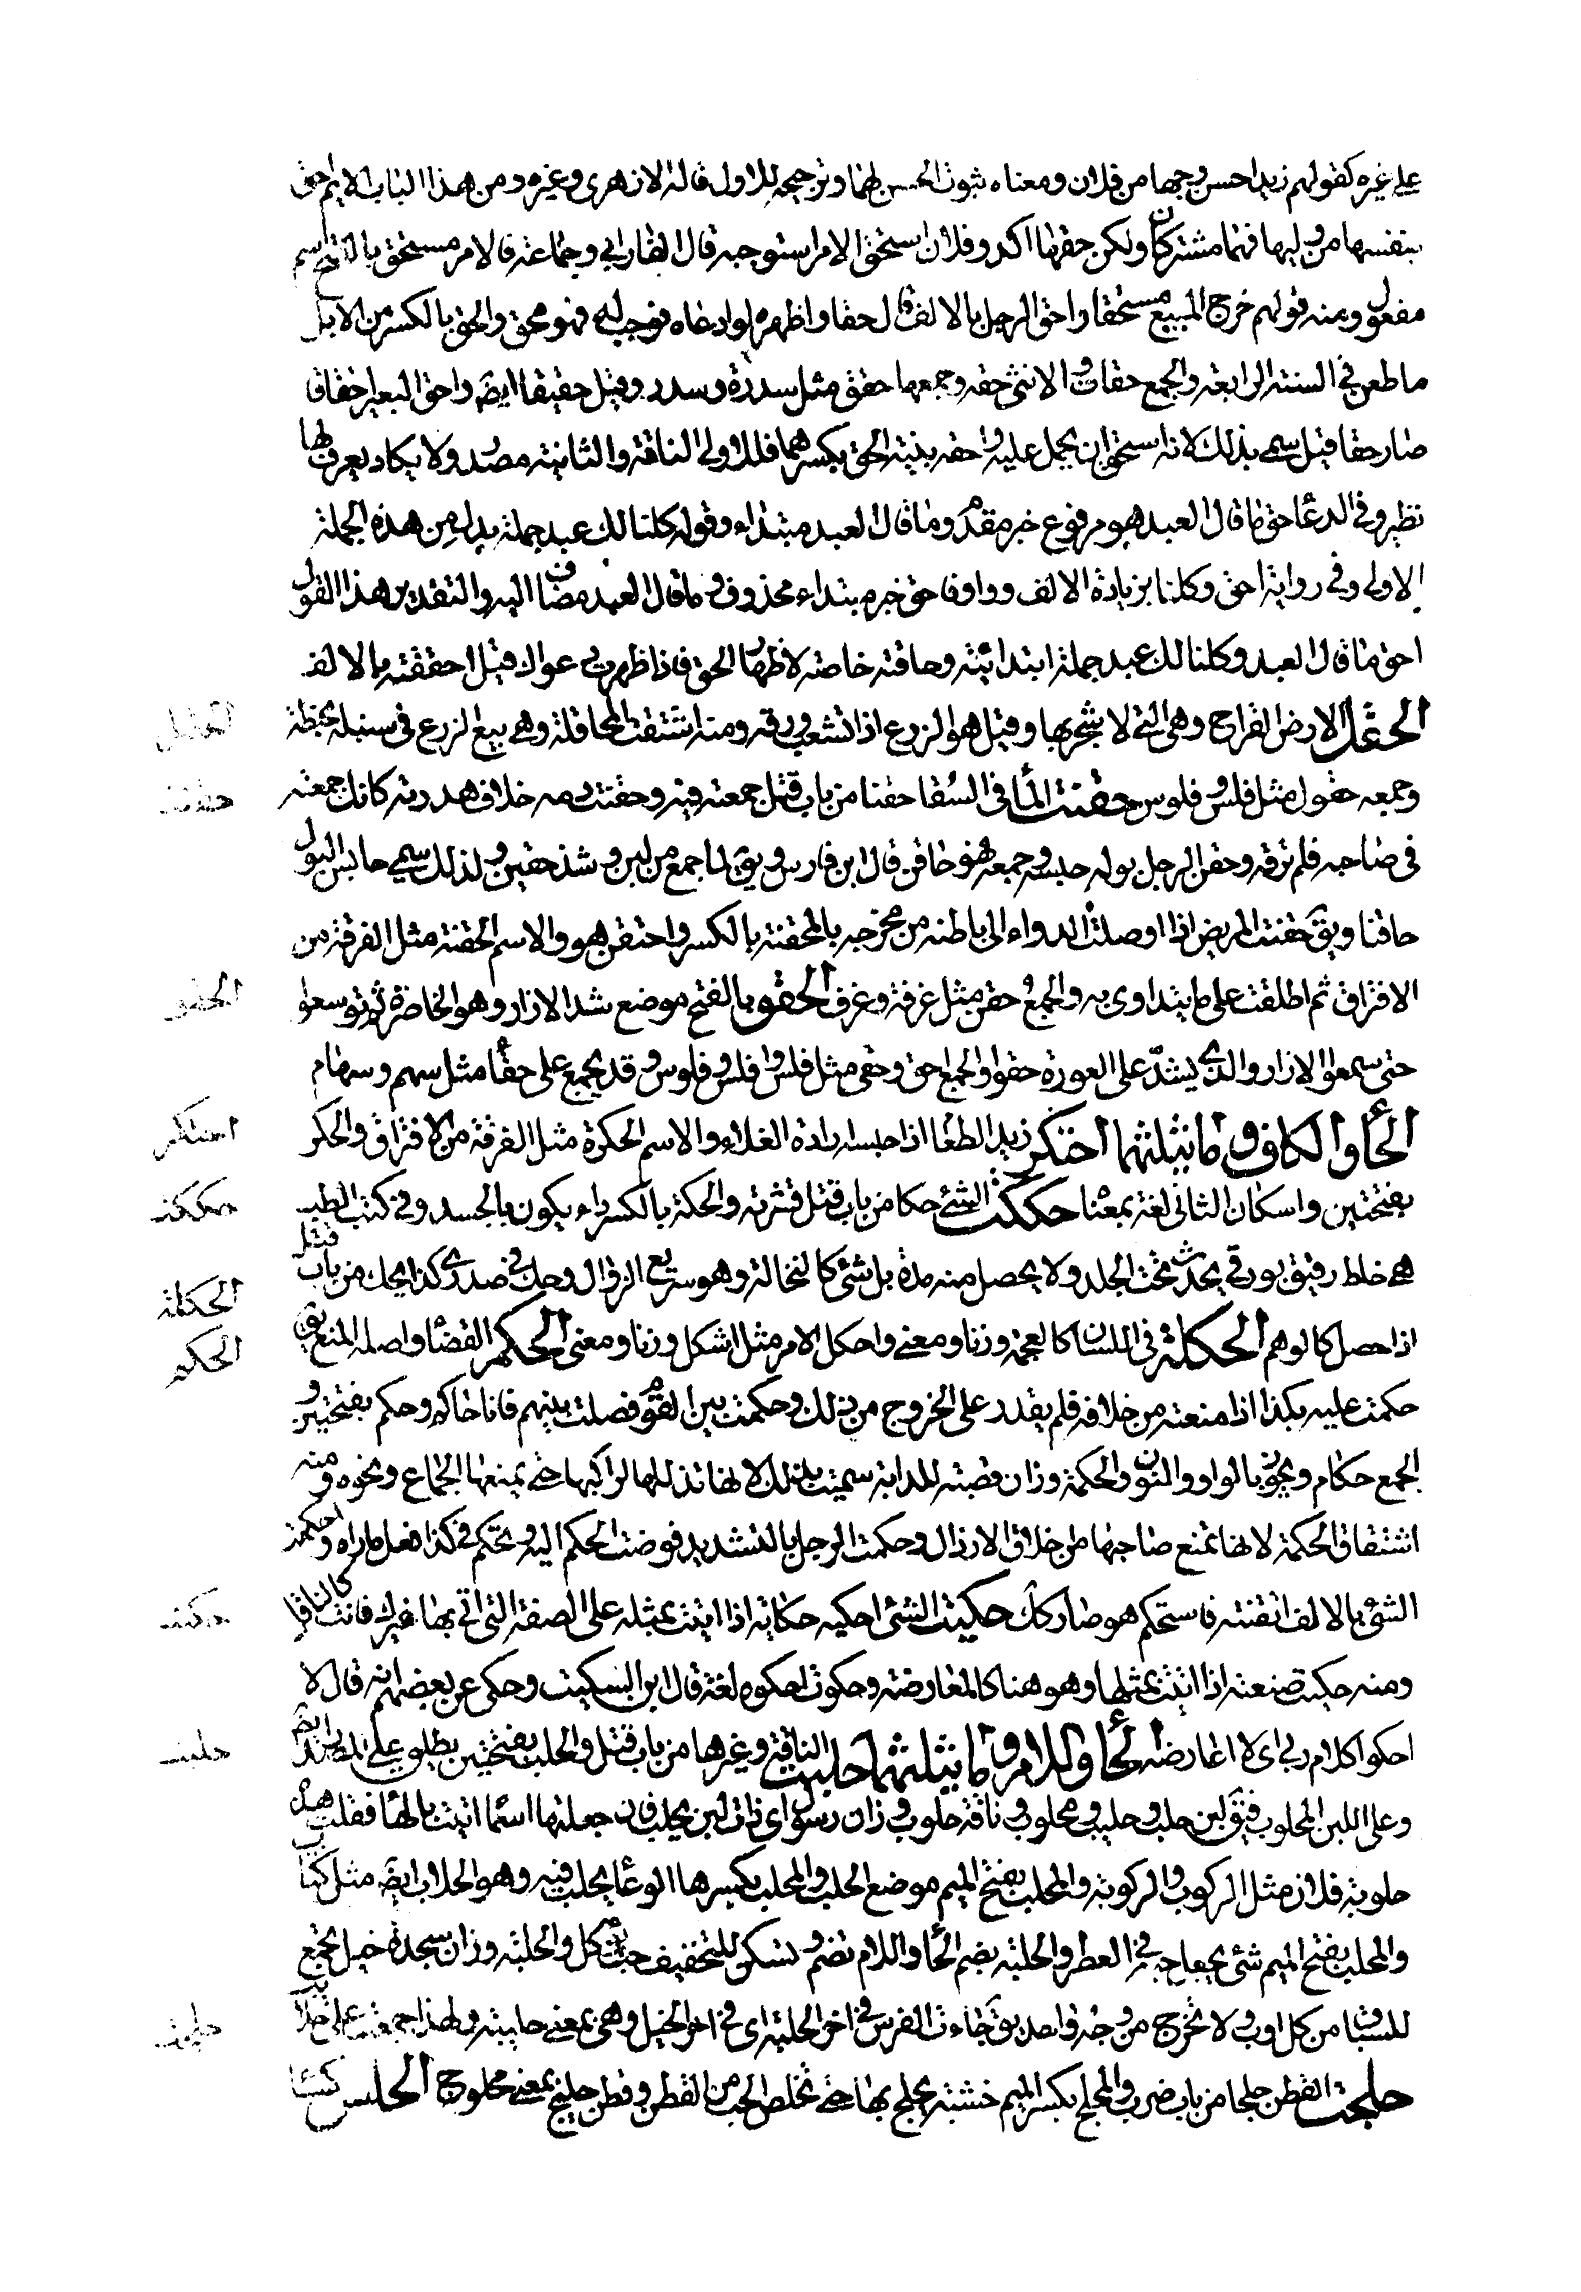 على غيره كقولهم زيد احسن وجها من فلان ومعناه ثبوت الحسن لهما وترجيحه للاول قاله الازهرى وغيره ومن هذا الباب الايم احق
بنفسها من وليها فهما مشتركان ولكن حقها اكد وفلان استحق الامر استوجبه قال الفارابى وجماعة فالامر مستحق بالفتح اسم
مفعول ومنه قولهم خرج المبيع مستحقا واحق الرجل بالالف قال حقا واظهره او ادعاه فوجب له فهو محق والحق بالكسر من الابل
ما طعن فى السنة الرابعة والجمع حقاق والانثى حقه وجمعها حقق مثل سدرة وسدر وقيل حقيقا ايضً واحق البعير احقاقا
صار حقا قيل سمى بذلك لانه استحق ان يحمل عليه واحقه بنية الحق بكسرهما فللاولى الناقة والثانية مصدر ولا يكاد يعرف لها
نظير وفى الدعا احق ما قال العبد هو مرفوع خبر مقدم وما قال العبد مبتداء وقوله كلنا لك عبد جملة بدل من هذه الجملة
الاولى وفى رواية احق وكلنا بزيادة الالف وواو فاحق خبر مبتداء محذوف وما قال العبد مضاف اليه والتقدير هذا القول
احق ما قال العبد وكلنا لك عبد جملة ابتدائية وحاقته خاصة لاظهار الحق فاذا ظهرت دعواك قيل احققته بالالف
الحقل الارض القراح وهى التى لا شجر بها وقيل هو الزرع اذا تشعب ورقه ومنه اشتقت المحاقلة وهى بيع الزرع فى سنبله بحنطة
وجمعه حقول مثل فلس وفلوس حقنت الماء فى السقا حقنا من باب قتل جمعته فيه وحقنت دمه خلاف هدرته كانك جمعته
فى صاحبه فلم ترقه وحقن الرجل بوله حبسه وجمعه فهو حاقن قال ابن فارس ويق لما جمع من لبن وشد حقين ولذلك سمى حابس البول
حاقنا ويق حقنت المريض اذا اوصلت الدواء الى باطنه من مخرجه بالمحقنة بالكسر واحتقن هو والاسم الحقنة مثل الفرقة من
الافتراق ثم اطلقت على ما يتداوى به والجمع حقن مثل غرفة وغرف الحقو بالفتح موضع شد الازار وهو الخاصرة ثم توسعوا
حتى سموا الازار والذى يشد على العورة حقوا والجمع احق وحقى مثل فلس وافلس وفلوس وقد يجمع على حقاء مثل سهم وسهام
الحاء والكاف وما يثلثهما احتكر زيد الطعا اذا حبسه ارادة الغلاء والاسم الحكرة مثل الفرقة من الافتراق والحكر
بفتحتين واسكان الثانى لغة بمعناه حككت الشئ حكا من باب قتل قشرته والحكة بالكسر داء يكون بالجسد وفى كتب الطب
هى خلط رقيق بورقى يحدث تحت الجلد ولا يحصل منه مدة بل شئ كالنخالة وهو سريع الزوال وحك فى صدرى كذا يحك من باب قتل
اذا حصل كالوهم الحكلة فى اللسان كالعجمة وزنا ومعنى واحكل الامر مثل اشكل وزنا ومعنى الحكم القضا واصله المنع يق
حكمت عليه بكذا اذا منعته من خلافه فلم يقدر على الخروج من ذلك وحكمت بين القوم فصلت بينهم فانا حاكم وحكم بفتحتين و
الجمع حكام ويجوز بالواو والنون والحكمة وزان قصبة للدابة سميت بذلك لانها تذللها لراكبها حتى تمنعها الجماع ونحوه ومنه
اشتقاق الحكمة لانها تمنع صاحبها من خلاق الارذال وحكمت الرجل بالتشديد فوضت الحكم اليه وتحكم فى كذا فعل ما راه واحكمت
الشئ بالالف اتقنته فاستحكم هو صار كك حكيت الشئ احكيه حكاية اذا اتيت بمثله على الصفة التى اتى بها غيرك فانت كالناقل
ومنه حكيت صنعته اذا اتيت بمثلها وهو هنا كالمعارضة وحكوت احكوه لغة قال ابن السكيت وحكى عن بعضهم انه قال لا
احكو كلام ربى اى لا اعارضه الحاء واللام وما يثلثهما حلبت الناقة وغيرها من باب قتل والحلب بفتحتين يطلق على المصدر ايضً
وعلى اللبن المحلوب فيق لبن حلب وحليب ومحلوب وناقة حلوب وزان رسول اى ذات لبن يحلب فان جعلتها اسما اتيت بالهاء فقلت هذه
حلوبة فلان مثل الركوب والركوبة والمحلب بفتح الميم موضع الحلب والمحلب بكسرها الوعاء يحلب فيه وهو الحلاب ايضً مثل كتاب
والمحلب بفتح الميم شئ يجعل حبه فى العطر والحلبة بضم الحاء واللام تضم وتسكن للتخفيف حب يؤكل والحلبة وزان سجدة خيل تجمع
للسباق من كل اوب ولا تخرج من وجه واحد يق جاءت الفرس فى اخر الحلبة اى فى اخر الخيل وهى بمعنى حليبة ولهذا جمعت على حلائب
حلجت القطن حلجا من باب ضرب والمحلج بكسر الميم خشبة يحلج بها حتى تخلص الحب من القطن وقطن حليج بمعنى محلوج الحلس كساء
حقنت
الحقو
احتكر
حككت
الحكلة
الحكم
حكيت
حلبت
حلجت